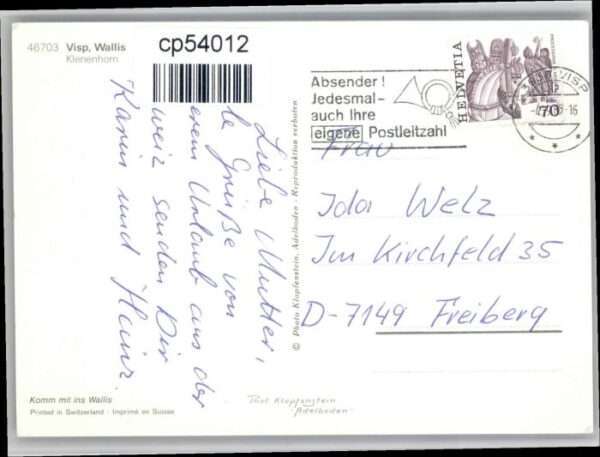 46703 Visp, Wallis
Kleinenhorn
cp54012
Liebe Mutter,
le Grüße von
erem Urlaub aus der
weiz senden Dir
Karin und Heinz.
© Photo Klopfenstein, Adelboden - Reproduktion verboten
Absender!
Jedesmal-
auch Ihre
eigene Postleitzahl
HELVETIA
70
VISP
Frau
Ida Welz
Im Kirchfeld 35
D-7149 Freiberg
Komm mit ins Wallis
Printed in Switzerland - Imprimé en Suisse
Photo Klopfenstein
Adelboden